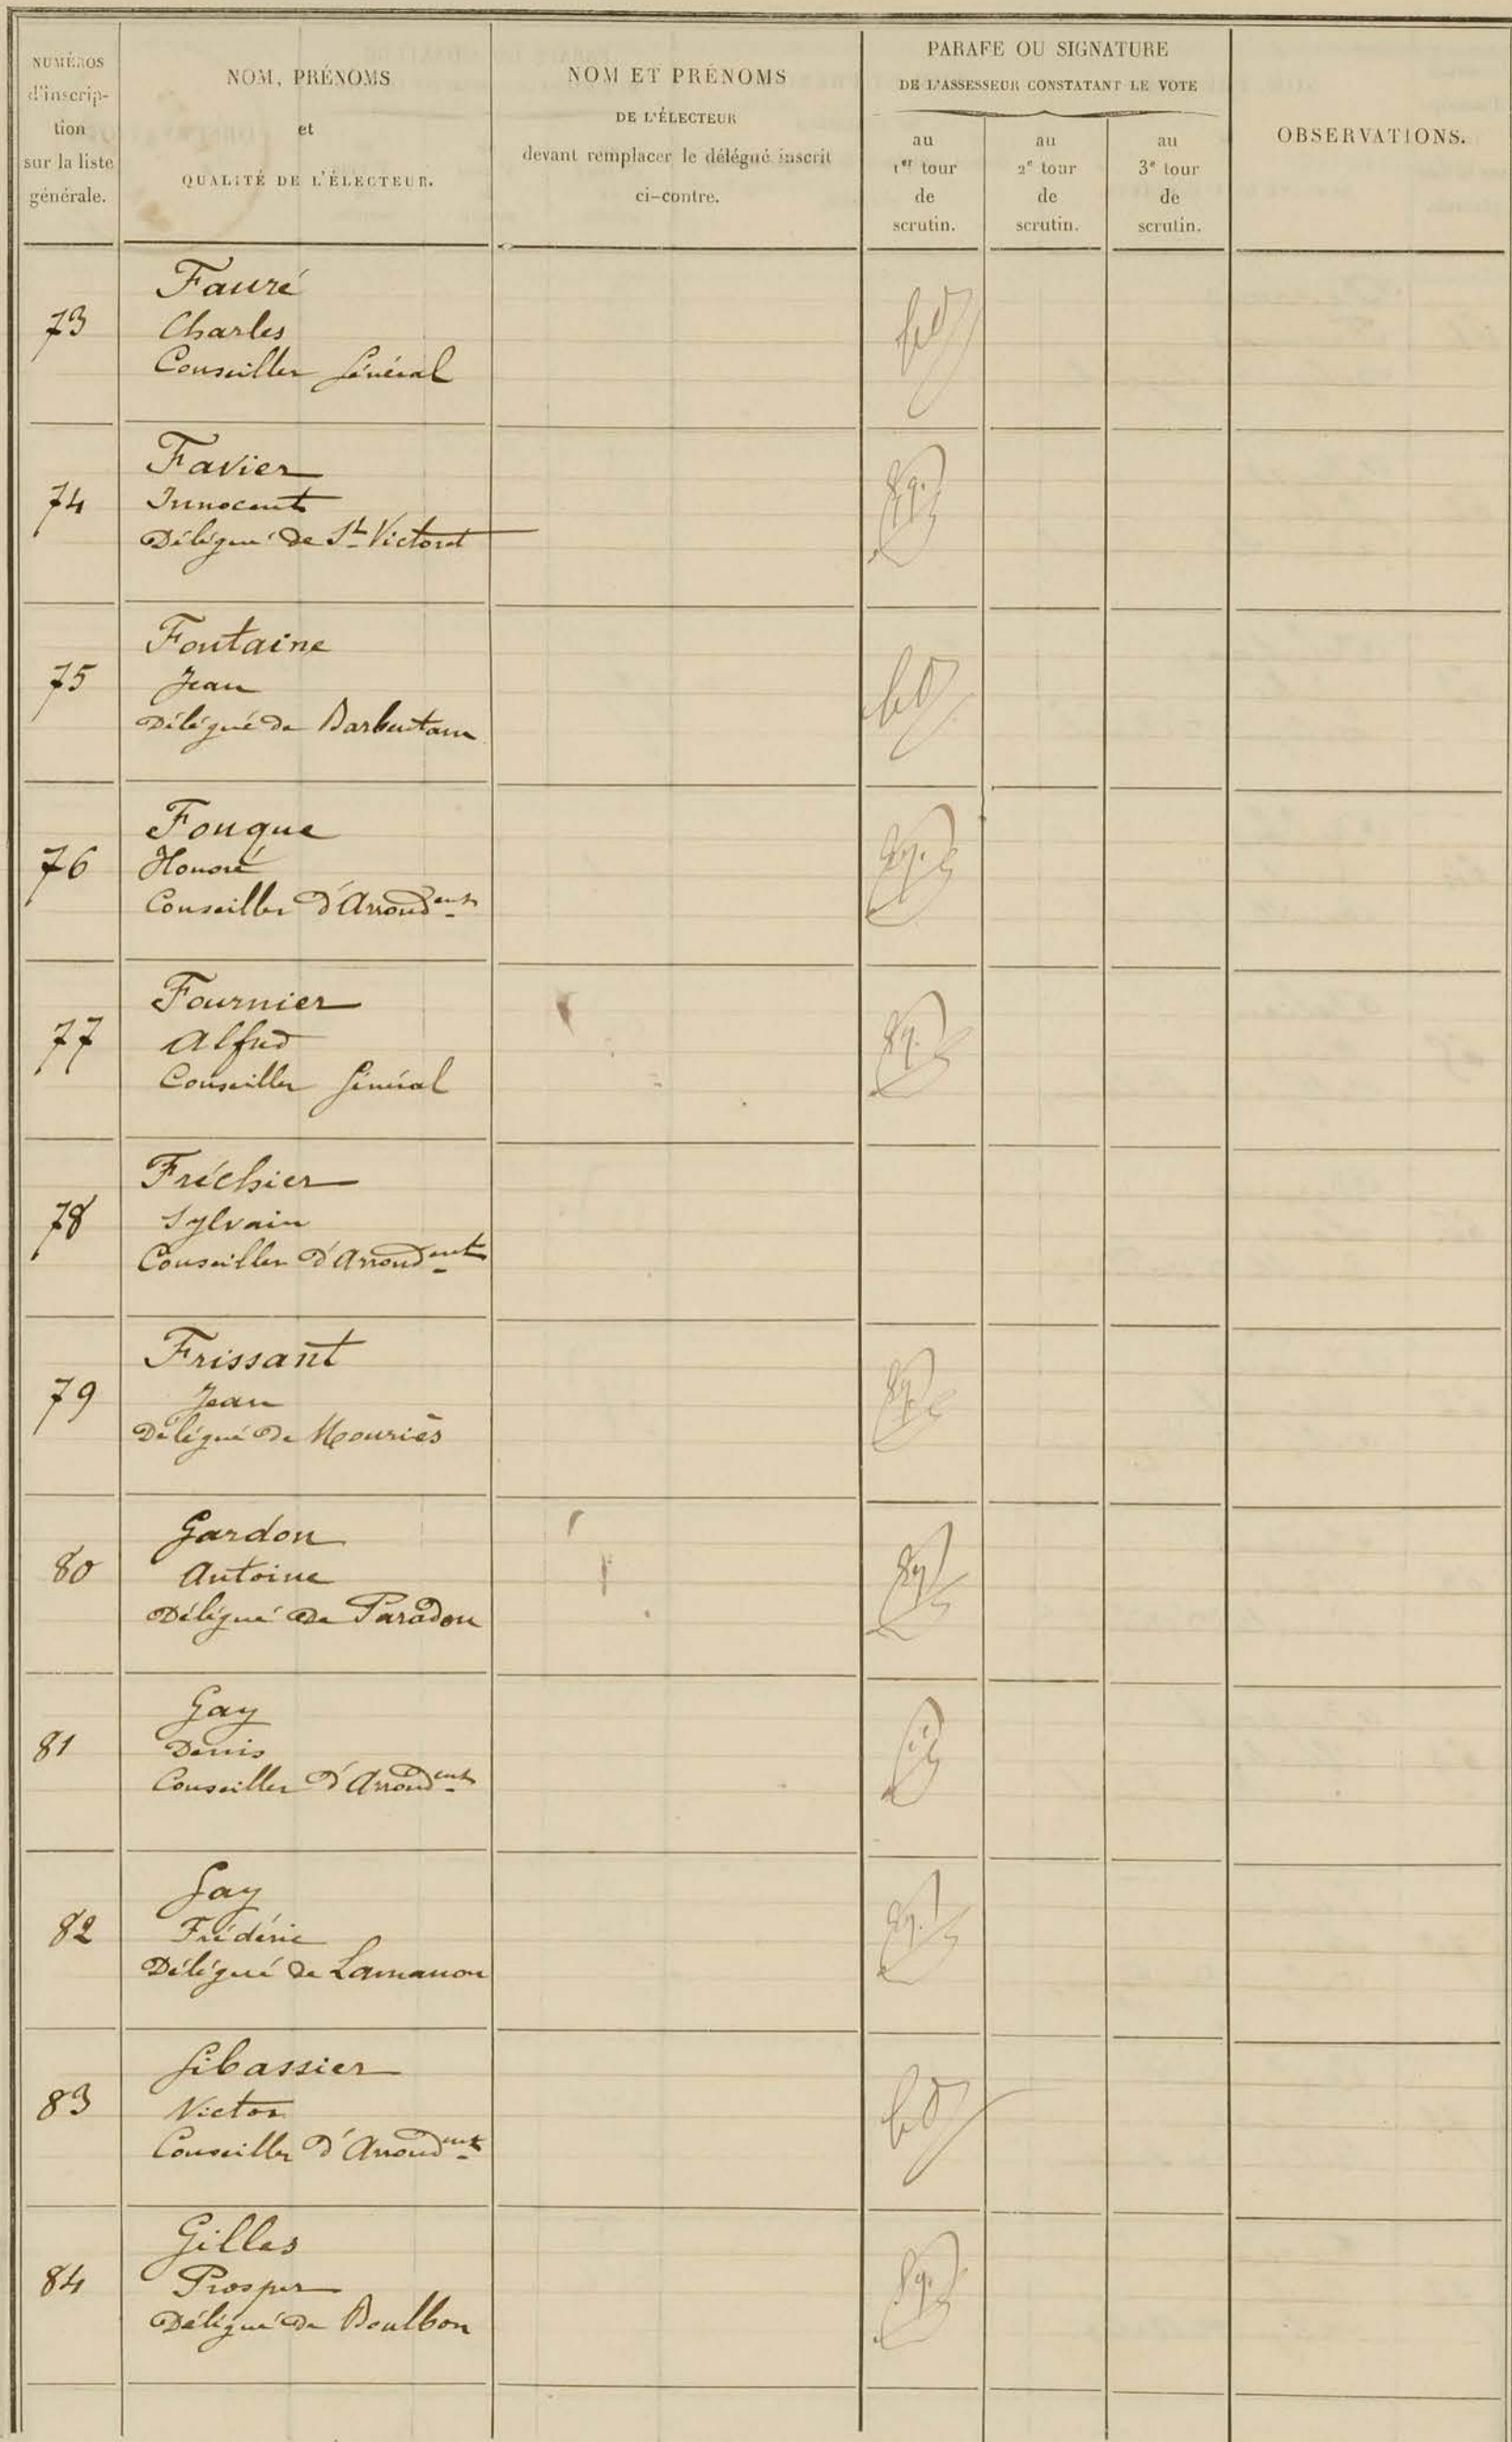 NUMÉROS
d'inscrip-
tion
sur la liste
générale.
NOM, PRÉNOMS
et
QUALITÉ DE L'ÉLECTEUR.
NOM ET PRÉNOMS
DE L'ÉLECTEUR
devant remplacer le délégué inscrit
ci-contre.
PARAFE OU SIGNATURE
DE L'ASSESSEUR CONSTATANT LE VOTE
au
1er tour
de
scrutin.
au
2e tour
de
scrutin.
au
3e tour
de
scrutin.
OBSERVATIONS.
73
Fauré
Charles
Conseiller Général
74
Favier
Innocent
Délégué de St Victoret
75
Fontaine
Jean
Délégué de Barbentane
76
Fouque
Honoré
Conseiller d'Arrondent
77
Fournier
Alfred
Conseiller Général
78
Fréchier
Sylvain
Conseiller d'Arrondent
79
Frissant
Jean
Délégué de Mouriès
80
Gardon
Antoine
Délégué de Paradou
81
Gay
Denis
Conseiller d'Arrondent
82
Gay
Frédéric
Délégué de Lamanon
83
Gibassier
Victor
Conseiller d'Arrondent
84
Gilles
Prosper
Délégué de Boulbon